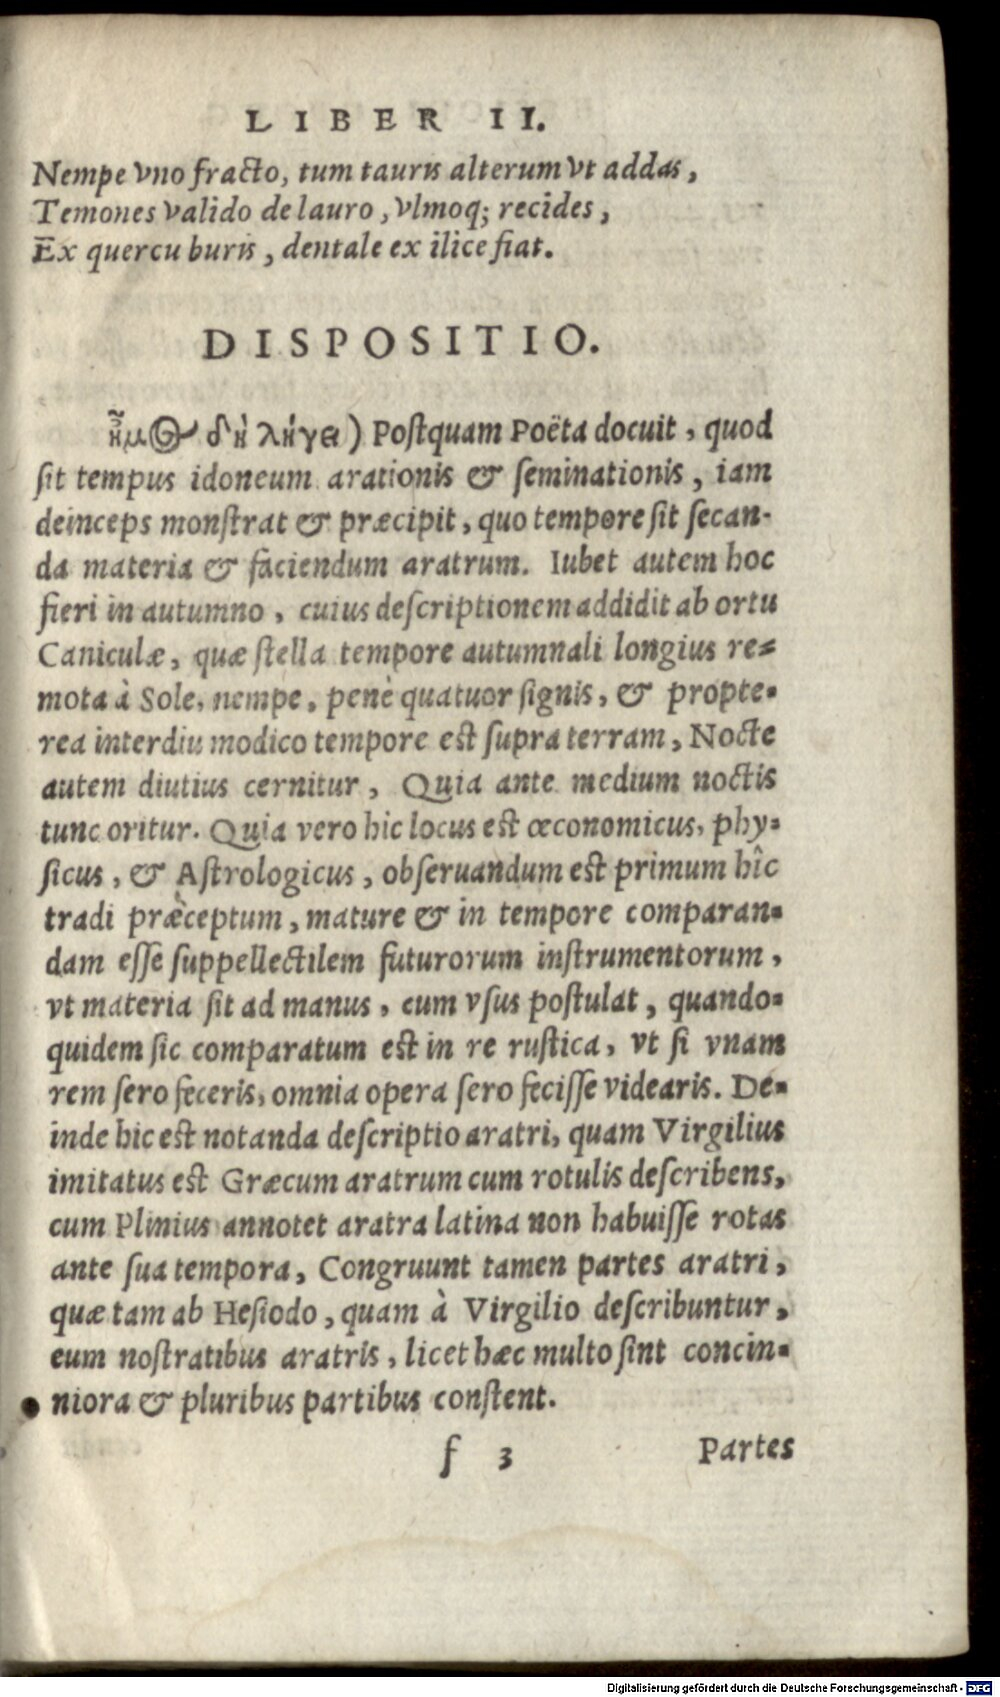 LIBER II.
Nempe vno fracto, tum tauris alterum vt addas,
Temones valido de lauro, vlmoq; recides,
Ex quercu buris, dentale ex ilice fiat.
DISPOSITIO.
ἦμος δὴ λήγει) Postquam Poëta docuit, quod
sit tempus idoneum arationis & seminationis, iam
deinceps monstrat & præcipit, quo tempore sit secan-
da materia & faciendum aratrum. Iubet autem hoc
fieri in autumno, cuius descriptionem addidit ab ortu
Caniculæ, quæ stella tempore autumnali longius re-
mota à Sole, nempe, penè quatuor signis, & propte-
rea interdiu modico tempore est supra terram, Nocte
autem diutius cernitur, Quia ante medium noctis
tunc oritur. Quia vero hic locus est œconomicus, phy-
sicus, & Astrologicus, obseruandum est primum hîc
tradi præceptum, mature & in tempore comparan-
dam esse suppellectilem futurorum instrumentorum,
vt materia sit ad manus, cum vsus postulat, quando-
quidem sic comparatum est in re rustica, vt si vnam
rem sero feceris, omnia opera sero fecisse videaris. De-
inde hic est notanda descriptio aratri, quam Virgilius
imitatus est Græcum aratrum cum rotulis describens,
cum Plinius annotet aratra latina non habuisse rotas
ante sua tempora, Congruunt tamen partes aratri,
quæ tam ab Hesiodo, quam à Virgilio describuntur,
cum nostratibus aratris, licet hæc multo sint concin-
niora & pluribus partibus constent.
f 3 Partes
Digitalisierung gefördert durch die Deutsche Forschungsgemeinschaft - DFG